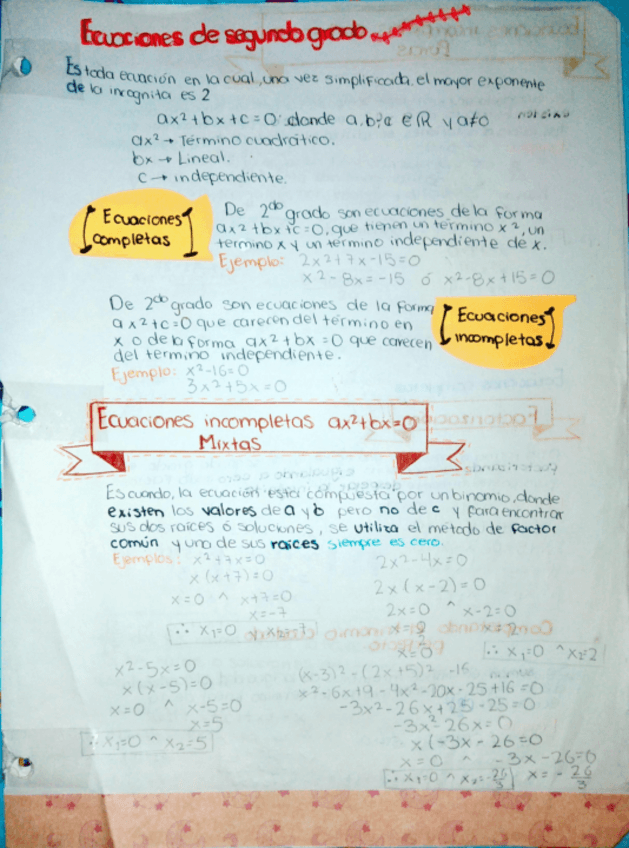 Ecuaciones de segundo grado
Es toda ecuación en la cual, una vez simplificada, el mayor exponente
de la incognita es 2
ax²+bx+c=0: donde a,b,c ∈ℝ y a≠0
ax² → Término cuadrático.
bx → Lineal.
c → independiente.
Ecuaciones
completas
De 2do grado son ecuaciones de la forma
ax²+bx+c=0, que tienen un término x², un
termino x y un termino independiente de x.
Ejemplo: 2x²+7x-15=0
x²-8x=-15 ó x²-8x+15=0
De 2do grado son ecuaciones de la forma
ax²+c=0 que carecen del término en
x o de la forma ax²+bx=0 que carecen
del termino independiente.
Ejemplo: x²-16=0
3x²+5x=0
Ecuaciones
incompletas
Ecuaciones incompletas ax²+bx=0
Mixtas
Es cuando, la ecuación esta compuesta por un binomio, donde
existen los valores de a y b pero no de c y para encontrar
sus dos raíces ó soluciones, se utiliza el metodo de factor
común y uno de sus raíces siempre es cero.
Ejemplos: x²+7x=0
x(x+7)=0
x=0 ^ x+7=0
x=-7
∴ x₁=0 ^ x₂=-7
2x²-4x=0
2x(x-2)=0
2x=0 ^ x-2=0
x=0/2 x=2
x=0
∴ x₁=0 ^ x₂=2
x²-5x=0
x(x-5)=0
x=0 ^ x-5=0
x=5
∴ x₁=0 ^ x₂=5
(x-3)²-(2x+5)² -16
x²-6x+9-4x²-20x-25+16=0
-3x²-26x+25-25=0
-3x²-26x=0
x(-3x-26=0
x=0 ^ -3x-26=0
x=-26/3
∴ x₁=0 ^ x₂=-26/3